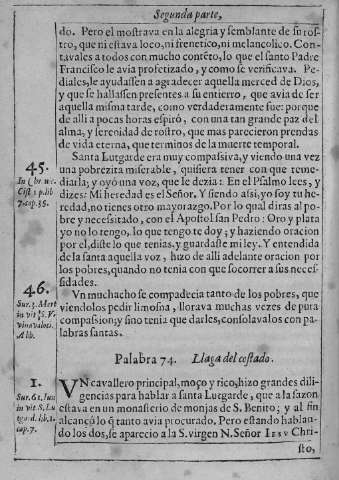 Segunda parte,
do. Pero el mostrava en la alegria y semblante de su ros-
tro, que ni estava loco, ni frenetico, ni melancolico. Con-
tavales a todos con mucho contẽto, lo que el santo Padre
Francisco le avia profetizado, y como se verificava. Pe-
diales, le ayudassen a agradecer aquella merced de Dios,
y que se hallassen presentes a su entierro, que avia de ser
aquella misma tarde, como verdaderamente fue: porque
de alli a pocas horas espirò, con una tan grande paz del
alma, y serenidad de rostro, que mas parecieron prendas
de vida eterna, que terminos de la muerte temporal.
45.
Santa Lutgarde era muy compassiva, y viendo una vez
una pobrezita miserable, quisiera tener con que reme-
diarla; y oyó una voz, que le dezia: En el Psalmo lees, y
dizes: Mi heredad es el Señor. Y siendo assi, yo soy tu he-
redad, no tienes otro mayorazgo. Por lo qual diras al po-
bre y necessitado, con el Apostol san Pedro: Oro y plata
yo no lo tengo, lo que tengo te doy; y haziendo oracion
por el, diste lo que tenias, y guardaste mi ley. Y entendida
de la santa aquella voz, hizo de alli adelante oracion por
los pobres, quando no tenia con que socorrer a sus neces-
sidades.
46.
Un muchacho se compadecia tanto de los pobres, que
viendolos pedir limosna, llorava muchas vezes de pura
compassion; y sino tenia que darles, consolavalos con pa-
labras santas.
Palabra 74. Llaga del costado.
1.
VN cavallero principal, moço y rico, hizo grandes dili-
gencias para hablar a santa Lutgarde, que a la sazon
estava en un monasterio de monjas de S. Benito; y al fin
alcançó lo q̃ tanto avia procurado. Pero estando hablan-
do los dos, se aparecio a la S. virgen N. Señor IESV Chri-
sto,